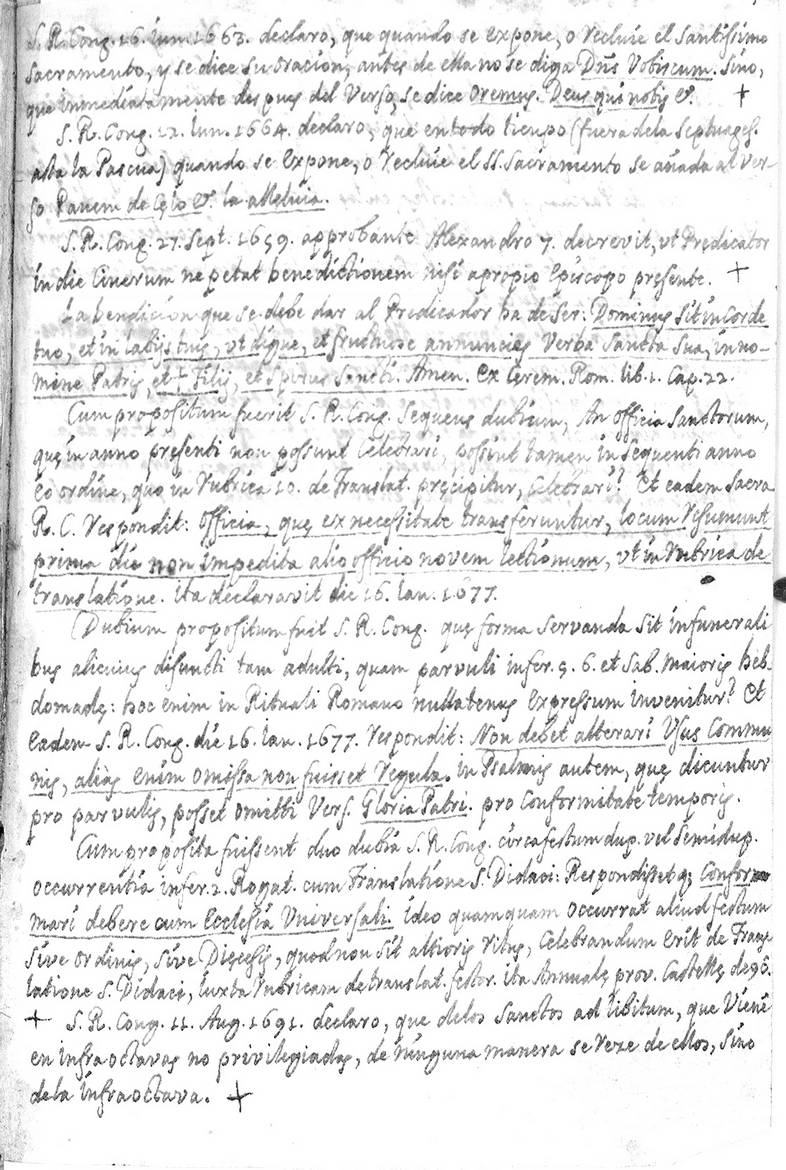 S. R. Cong. 16. Iun. 1663. declaro, que quando se expone, o recluie el Santissimo
Sacramento, y se dice su oracion, antes de ella no se diga Dns Vobiscum. sino,
que inmediatamente despues del Verso, se dice Oremus. Deus qui nobis &. +
S. R. Cong. 12. Iun. 1664. declaro, que en todo tiempo (fuera de la Septuages.
asta la Pascua) quando se expone, o recluie el SS. Sacramento se añada al ver-
so Panem de Cęlo &. la alleluia.
S. R. Cong. 27. Sept. 1659. approbante Alexandro 7. decrevit, vt Prędicator
in die Cinerum ne petat benedictionem nisi a propio Episcopo pręsente. +
La bendicion que se debe dar al Predicador ha de ser: Dominus sit in corde
tuo, et in labijs tuis, vt digne, et fructuose annuncies Verba Sancta sua, in no-
mine Patris, et + Filij, et Spirus Sancti. Amen. ex Cerem. Rom. lib. 1. Cap. 22.
Cum propositum fuerit S. R. Cong. sequens dubium, An officia Sanctorum,
quę in anno pręsenti non possunt Celebrari, possint tamen in sequenti anno
eo ordine, quo in Rubrica 10. de Translat. pręcipitur, Celebrari? Et eadem Sacra
R. C. respondit: officia, quę ex necessitate transferuntur, locum resumunt
prima die non impedita alio officio novem lectionum, vt in Rubrica de
translatione. Ita declaravit die 16. Ian. 1677.
Dubium propositum fuit S. R. Cong. quę forma servanda sit in funerali
bus alicuius defuncti tam adulti, quam parvuli infer. 5. 6. et Sab. maioris heb-
domadę: hoc enim in Rituali Romano nullatenus expressum invenitur? Et
eadem S. R. Cong. die 16. Ian. 1677. respondit: Non debet alterari Vsus Commu
nis, alias enim omissa non fuisset regula. in Psalmis autem, quę dicuntur
pro parvulis, posset omitti Vers. Gloria Patri. pro conformitate temporis.
Cum proposita fuissent duo dubia S. R. Cong. circa festum dup. vel semidup.
occurrentia infer. 2. Rogat. cum Translatione S. Didaci: Respondisset q; Confor
mari debere cum Ecclesia Universali. ideo quamquam occurrat aliud festum
sive ordinis, sive Dięcesis, quod non sit altioris ritus, Celebrandum erit de Trans
latione S. Didaci, iuxta rubricam de translat. festor. ita Annualę prov. Castellę de 96.
+ S. R. Cong. 11. Aug. 1691. declaro, que de los Sanctos ad libitum, que viene
en infraoctavas no privilegiadas, de ninguna manera se reze de ellos, sino
de la infraoctava. +